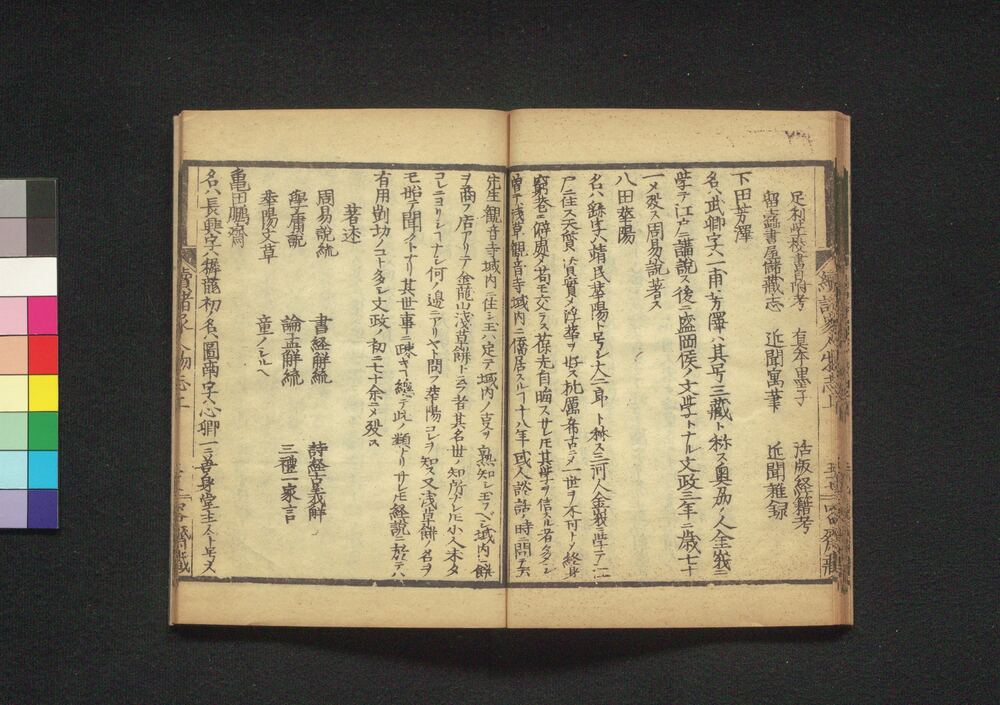 足利学校書目附考　真本墨子　活版経籍考
留蠧書屋儲蔵志　近聞寓筆　近聞雑録
下田芳澤
名ハ武卿字ハ一甫芳澤ハ其号三蔵ト称ス奥州ノ人金峩ニ
学テ江戸ニ講説ス後ニ盛岡侯ノ文学トナル文政三年ニ歳七十
一メ殁ス周易説著ス
八田華陽
名ハ繇字ハ靖民華陽ト号シ大二郎ト称ス三河ノ人金峩ニ学テ江
戸ニ住ス天質メ浮華ヲ好ス メ一世ヲ不可トメ終身
窮巷ニ僻処メ苟モ交ラス葆光自晦スサレモ其学ヲ信スル者多シ
曽テ浅草観音寺域内ニ僑居スルヿ十八年或人談話ノ時ニ問テ云
先生観音寺域内ニ住シ玉ハ定テ域内ノ叓ヲ熟知シ玉フベシ域内ニ餅
ヲ商フ店アリテ金龍山浅草餅ト云フ者其名世ノ知所ナレモ小人未タ
コレニヨリシヿナシ何ノ邊ニアリヤト問フ華陽コレヲ知ス又浅草餅ノ名ヲ
モ始テ聞クトナリ其世事ニ疎キヿ總テ此ノ類ナリサレモ経説ニ於テハ
有用剴切ノコト多シ文政ノ初ニ七十余ニメ殁ス
著述
周易説統　書経解統　詩経古義解
学庸説　論孟解統　三種一家言
華陽文草　童ノシルヘ
亀田鵬齋
名ハ長興字ハ穉龍初名ハ圖南字ハ心卿一ニ善身堂主人ト号ス
續諸家人物志上
續諸家人物志上